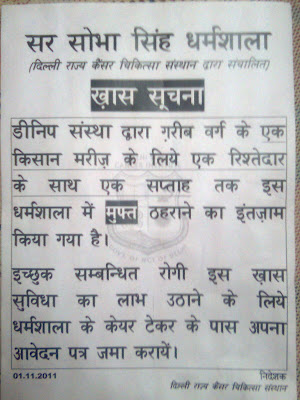 सर सोभा सिंह धर्मशाला
(दिल्ली राज्य कैंसर चिकित्सा संस्थान द्वारा संचालित)
ख़ास सूचना
डीनिप संस्था द्वारा ग़रीब वर्ग के एक
किसान मरीज़ के लिये एक रिश्तेदार
के साथ एक सप्ताह तक इस
धर्मशाला में मुफ्त ठहराने का इंतज़ाम
किया गया है।
इच्छुक सम्बन्धित रोगी इस ख़ास
सुविधा का लाभ उठाने के लिये
धर्मशाला के केयर टेकर के पास अपना
आवेदन पत्र जमा करायें।
01.11.2011 निदेशक
दिल्ली राज्य कैंसर चिकित्सा संस्थान